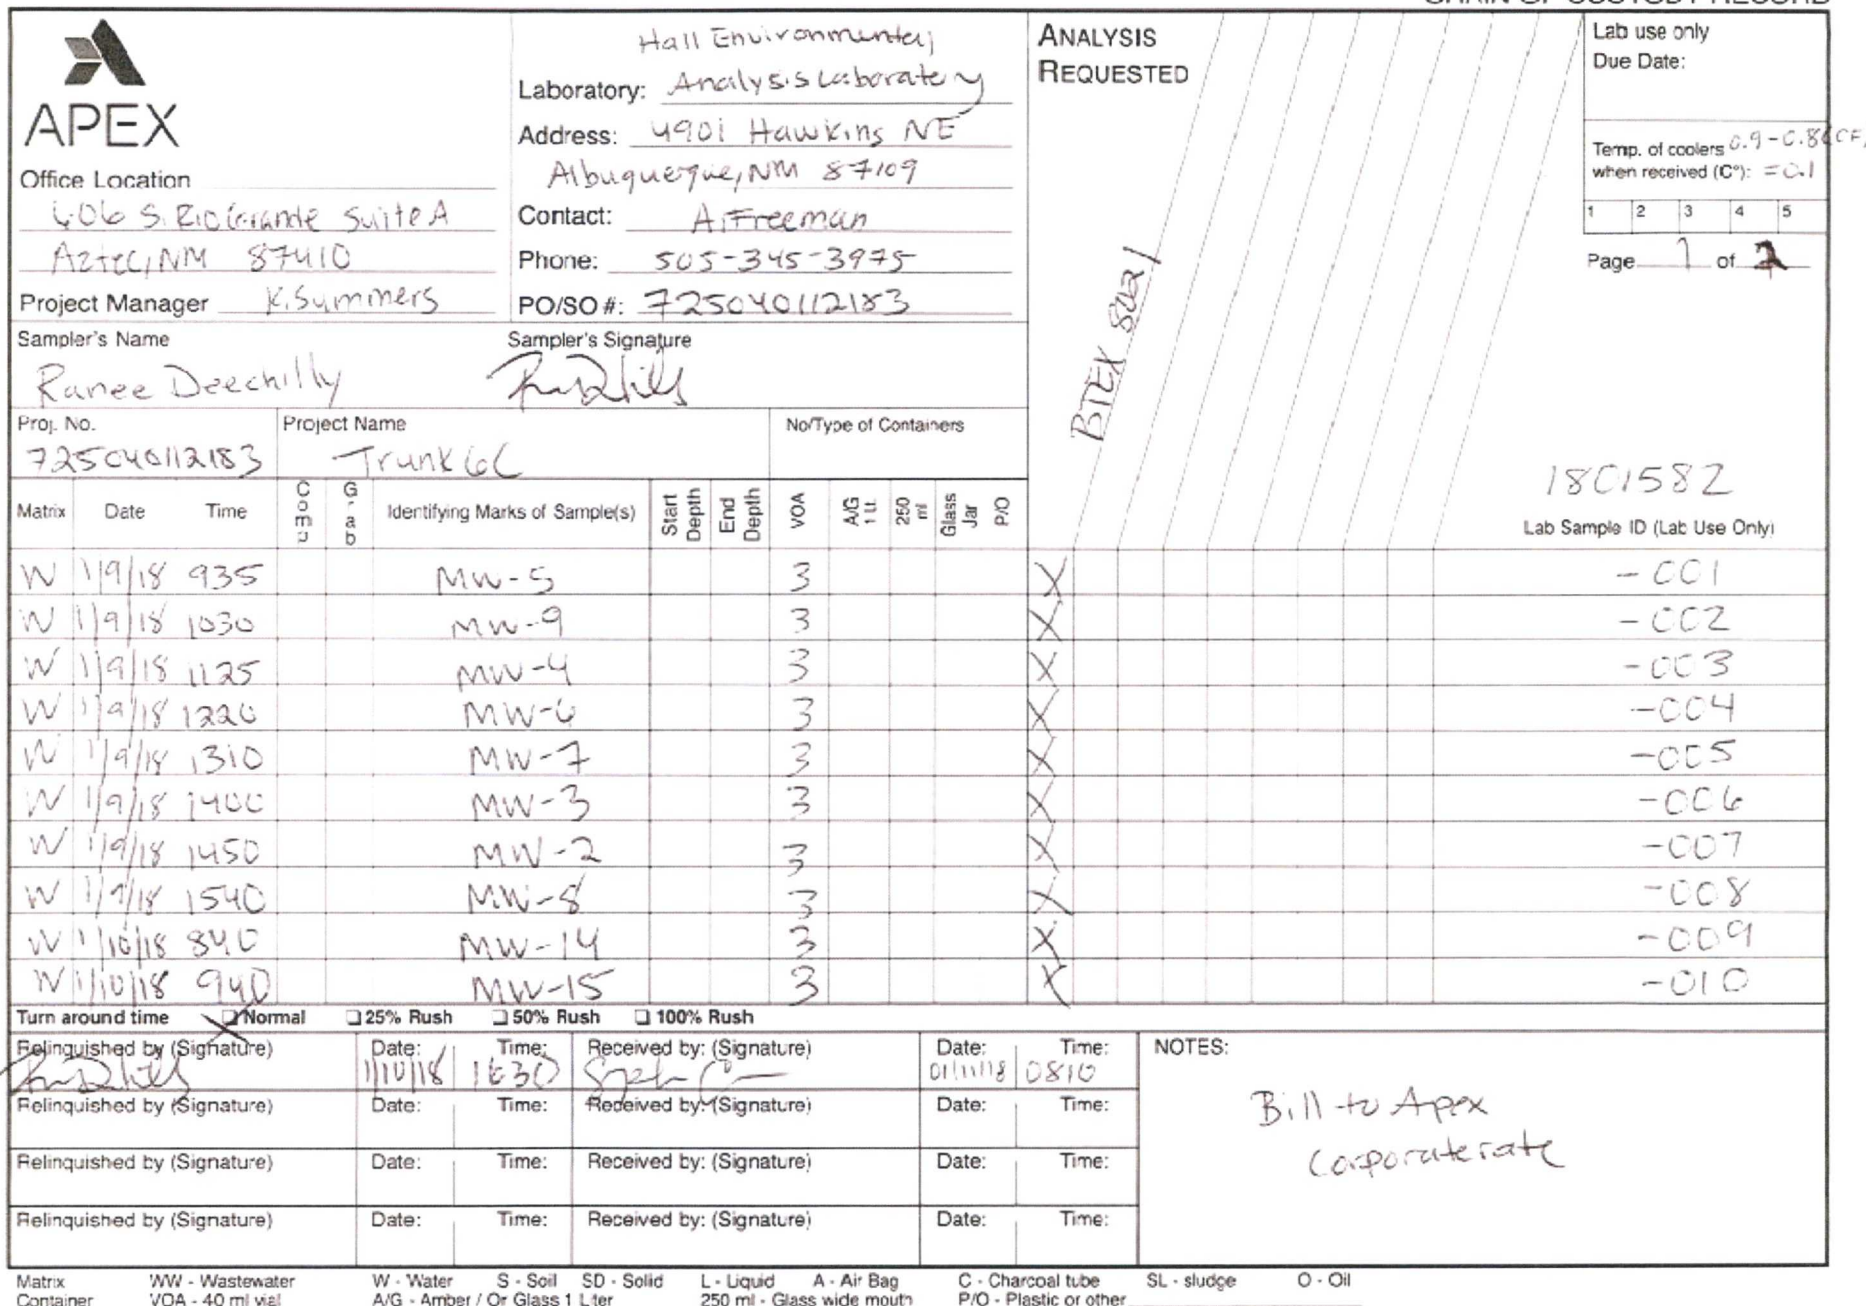 CHAIN OF CUSTODY RECORD
APEX
Office Location
606 S. Rio Grande Suite A
Aztec, NM 87410
Project Manager K. Summers
Hall Environmental
Laboratory: Analysis Laboratory
Address: 4901 Hawkins NE
Albuquerque, NM 87109
Contact: A. Freeman
Phone: 505-345-3975
PO/SO #: 725040112183
ANALYSIS
REQUESTED
BTEX 8021
Lab use only
Due Date:
Temp. of coolers 0.9-0.8(CF)
when received (C°): =0.1
1 2 3 4 5
Page 1 of 2
Sampler's Name
Ranee Deechilly
Sampler's Signature
Proj. No.
725040112183
Project Name
Trunk 6C
No/Type of Containers
1801582
Matrix Date Time Comp Grab Identifying Marks of Sample(s) Start Depth End Depth VOA A/G 1 Lt. 250 ml Glass Jar P/O Lab Sample ID (Lab Use Only)
W 1/9/18 935 MW-5 3 X -001
W 1/9/18 1030 MW-9 3 X -002
W 1/9/18 1125 MW-4 3 X -003
W 1/9/18 1220 MW-6 3 X -004
W 1/9/18 1310 MW-7 3 X -005
W 1/9/18 1400 MW-3 3 X -006
W 1/9/18 1450 MW-2 3 X -007
W 1/9/18 1540 MW-8 3 X -008
W 1/10/18 840 MW-14 3 X -009
W 1/10/18 940 MW-15 3 X -010
Turn around time Normal 25% Rush 50% Rush 100% Rush
Relinquished by (Signature) Date: 1/10/18 Time: 1630 Received by: (Signature) Date: 01/11/18 Time: 0810
Relinquished by (Signature) Date: Time: Received by: (Signature) Date: Time:
Relinquished by (Signature) Date: Time: Received by: (Signature) Date: Time:
Relinquished by (Signature) Date: Time: Received by: (Signature) Date: Time:
NOTES:
Bill to Apex
Corporaterate
Matrix WW - Wastewater W - Water S - Soil SD - Solid L - Liquid A - Air Bag C - Charcoal tube SL - sludge O - Oil
Container VOA - 40 ml vial A/G - Amber / Or Glass 1 Liter 250 ml - Glass wide mouth P/O - Plastic or other